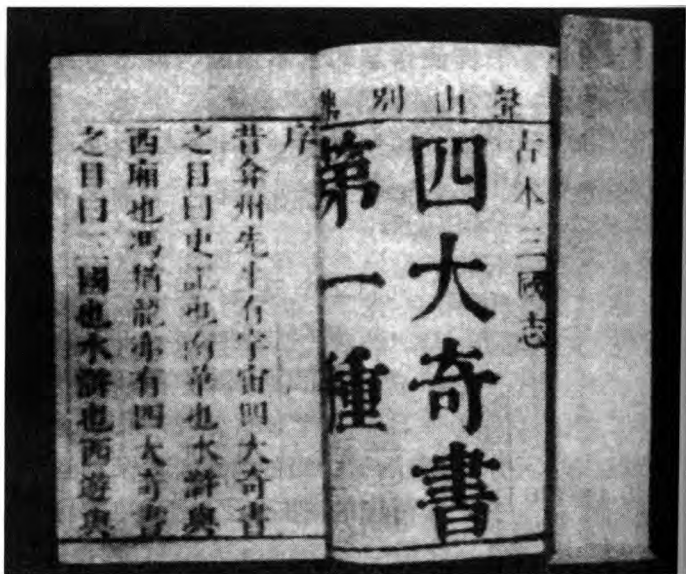 聲山別集
古本三國志
四大奇書
第一種
序
昔弇州先生有宇宙四大奇書
之目曰史記也南華也水滸與
西廂也馮猶龍亦有四大奇書
之目曰三國也水滸也西遊與